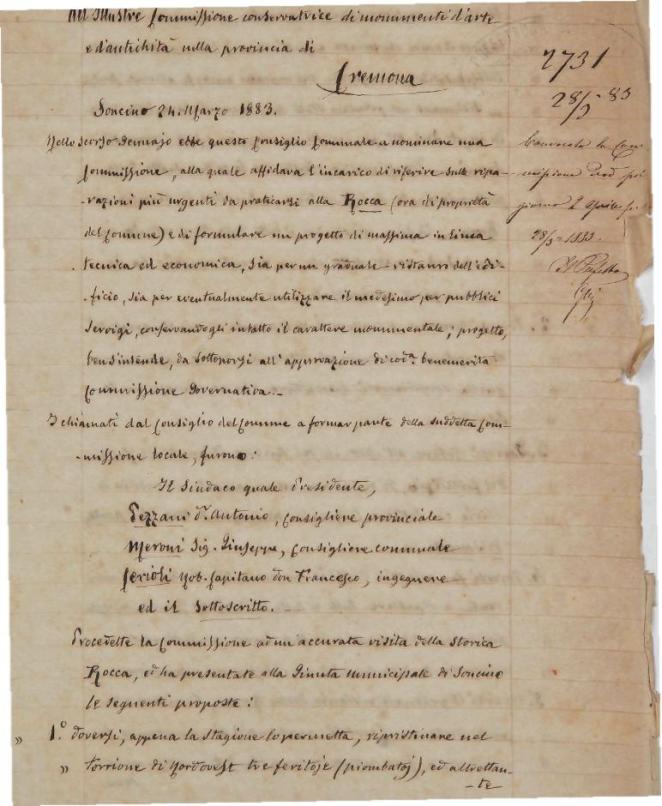 All'Illustre Commissione conservatrice di monumenti d'arte
e d'antichità nella provincia di
Cremona
Soncino 24. Marzo 1883.
Nello scorso Gennajo ebbe questo Consiglio Comunale a nominare una
Commissione, alla quale affidava l'incarico di riferire sulle ripa-
-razioni più urgenti da praticarsi alla Rocca (ora di proprietà
del Comune) e di formulare un progetto di massima in linea
tecnica ed economica, sia per un graduale ristauro dell'edi-
-ficio, sia per eventualmente utilizzare il medesimo per pubblici
servigi, conservandogli intatto il carattere monumentale; progetto,
ben s'intende, da sottoporsi all'approvazione di cod.a benemerita
Commissione Governativa._
I chiamati dal Consiglio del Comune a formar parte della suddetta Com-
-missione locale, furono:
Il Sindaco quale Presidente,
Pezzani D.r Antonio, Consigliere provinciale
Meroni Sig. Giuseppe, Consigliere comunale
Cerioli Nob. Capitano Don Francesco, ingegnere
ed il Sottoscritto._
Procedette la Commissione ad un'accurata visita della storica
Rocca, ed ha presentate alla Giunta municipale di Soncino
le seguenti proposte:
» 1.° Doversi, appena la stagione lo permetta, ripristinare nel
» torrione di Nordovest tre feritoje (piombatoj), ed altrettan-
-te
2731
28/3 - 83
la Com-
missione
giorno 2 Aprile
28/3 - 1883.
Il Prefetto